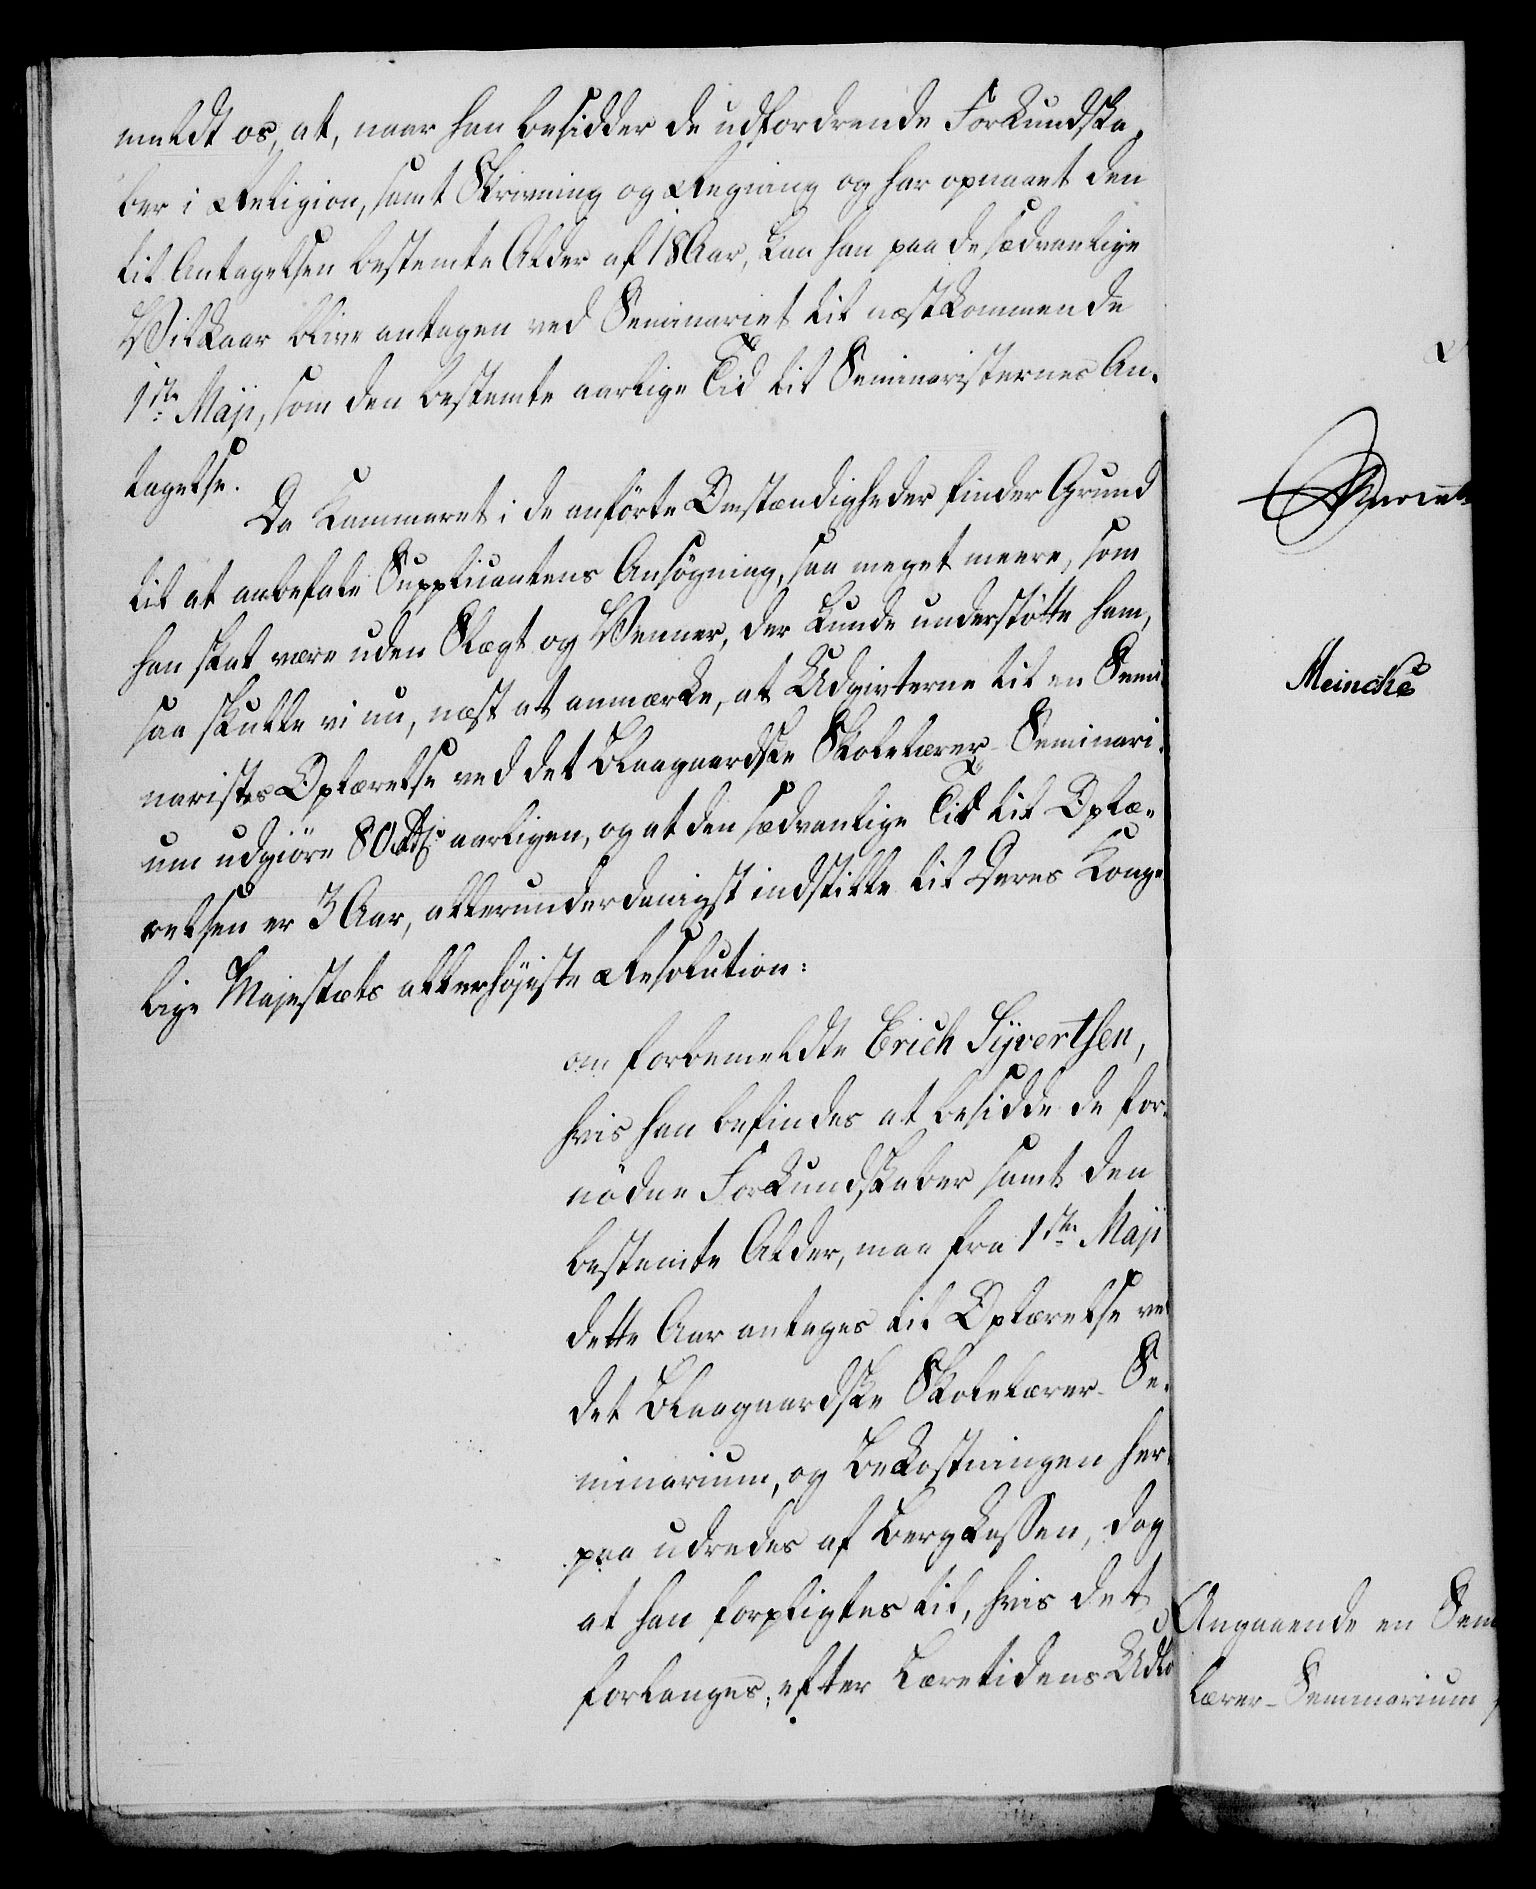 meldt os, at, naar han besidder de udfordrende Forkundska,
ber i Religion, samt Skrivning og Regning og har opnaaet den
til Antagelsen bestemte Alder af 18 Aar, kan han paa de sædvanlige
Vilkaar blive antagen ved Seminariet til næstkommende
1ste Maji, som den bestemte aarlige Tid til Seminaristernes An-
tagelse.
Da Kammeret i de anförte Omstændigheder finder Grund
til at anbefale Supplicantens Ansögning, saa meget meere, som
han skal være uden Slægt og Venner, der kunde understötte ham,
saa skulle vi nu, næst at anmærke, at Udgivterne til en Semi-
naristes Oplærelse ved det Blaagaardske Skolelærer-Seminari-
um udgiöre 80 Rdl aarligen, og at den sædvanlige Tid til Oplæ-
relsen er 3 Aar, allerunderdanigst indstille til Deres Konge-
lige Majestæts allerhöjeste Resolution:
om forbemeldte Erich Sÿvertsen,
hvis han befindes at besidde de for-
nödne Forkundskaber samt den
bestemte Alder, maa fra 1ste Maji
dette Aar antages til Oplærelse ved
det Blaagaardske Skolelærer-Se-
minarium, og Bekostningen her-
paa udredes af Bergkassen, dog
at han forpligtes til, hvis det
forlanges, efter Læretidens Udlö
Meincke
Angaaende en Sem
lærer-Seminarium